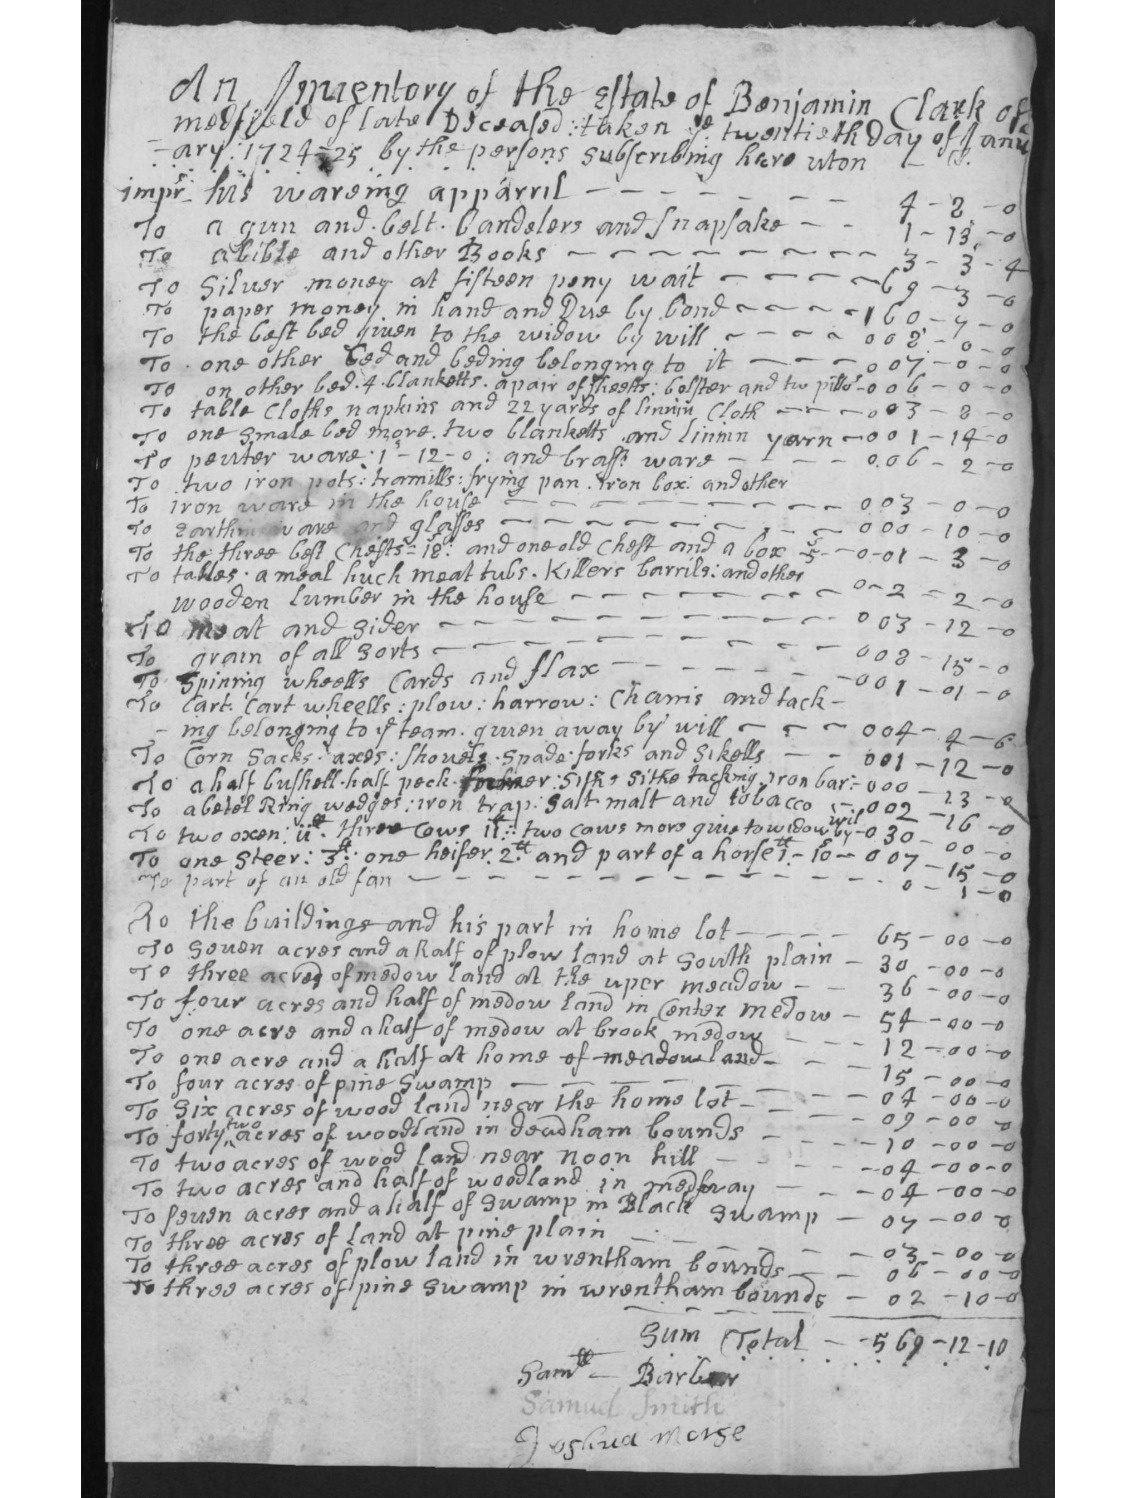 An Inventory of the Estate of Benjamin Clark of
medfield of late Deceased: taken ye twentieth Day of Janu
=ary: 1724=25 by the persons subscribing here uton
impr: his wareing apparril — 4-8-0
To a gun and belt bandelers and snapsake — 1-13-0
To a bible and other Books — 3-3-4
To Silver money at fifteen peny wait — 69-3-0
To paper money in hand and Due by bond — 160-7-0
To the best bed given to the widow by will — 008-0-0
To one other bed and beding belonging to it — 007-0-0
To on other bed. 4. blanketts. a pair of sheetts: bolster and tw pillo — 006-0-0
To table Cloths napkins and 22 yards of linnin Cloth — 003-8-0
To one smale bed more. two blanketts and linnin yarn — 001-14-0
To peuter ware: 1-12-0: and brass ware — 0.06-2-0
To two iron pots: tramills: frying pan. iron box: and other
To iron ware in the house — 003-0-0
To Earthn ware and glasses — 000-10-0
To the three best Chests=18s: and one old Chest and a box -5s- 0-01-3-0
To tables. a meal huch meat tubs. Killers barrils: and other
wooden lumber in the house — 0-2-2-0
To meat and Sider — 003-12-0
To grain of all sorts — 008-15-0
To Spining wheells Cards and flax — 001-01-0
To Cart. Cart wheells: plow: harrow: Chanis and tack-
- ing belonging to ye team. given away by will — 004-4-6
To Corn Sacks. axes: shovels. Spade. forks and Sikells — 001-12-0
To a half bushell. half peck. Siths Sithe tacking iron bar:- 000-13-0
To a betel Ring wedges: iron trap: salt malt and tobacco — 002-16-0
To two oxen: 11tt: three Cows 11tt: two Caws more give to widow by wil -030-00-0
To one Steer: 3tt: one heifer 2tt and part of a horse 1tt-10s- 007-15-0
To part of an old fan — 0-1-0
To the buildings and his part in home lot — 65-00-0
To Seven acres and a half of plow land at South plain — 30-00-0
To three acres of medow land at the uper meadow — 36-00-0
To four acres and half of medow land in Center medow — 54-00-0
To one acre and a half of medow at brook medow — 12-00-0
To one acre and a half at home of meadow land — 15-00-0
To four acres of pine Swamp — 04-00-0
To Six acres of wood land near the home lot — 09-00-0
To forty two acres of woodland in deadham bounds — 10-00-0
To two acres of wood land near noon hill — 04-00-0
To two acres and half of woodland in medway — 04-00-0
To seven acres and a half of swamp in Black Swamp — 07-00-0
To three acres of land at pine plain — 03-00-0
To three acres of plow land in wrentham bounds — 06-00-0
To three acres of pine Swamp in wrentham bounds — 02-10-0
Sum Total — 569-12-10
Samll Barber
Samuel Smith
Joshua Morse